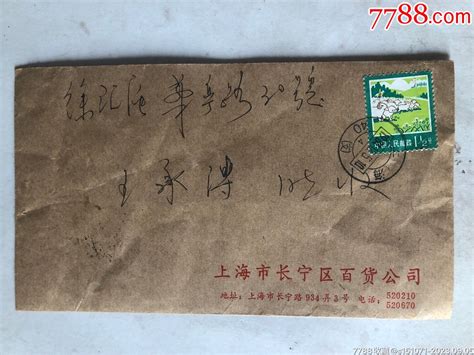 7788.com
徐汇区华亭路30号
中国人民邮政 1½分
王承博 收
上海市长宁区百货公司
地址：上海市长宁路934弄3号 电话：520210
520670
7788收藏@s151071-2023.09.0